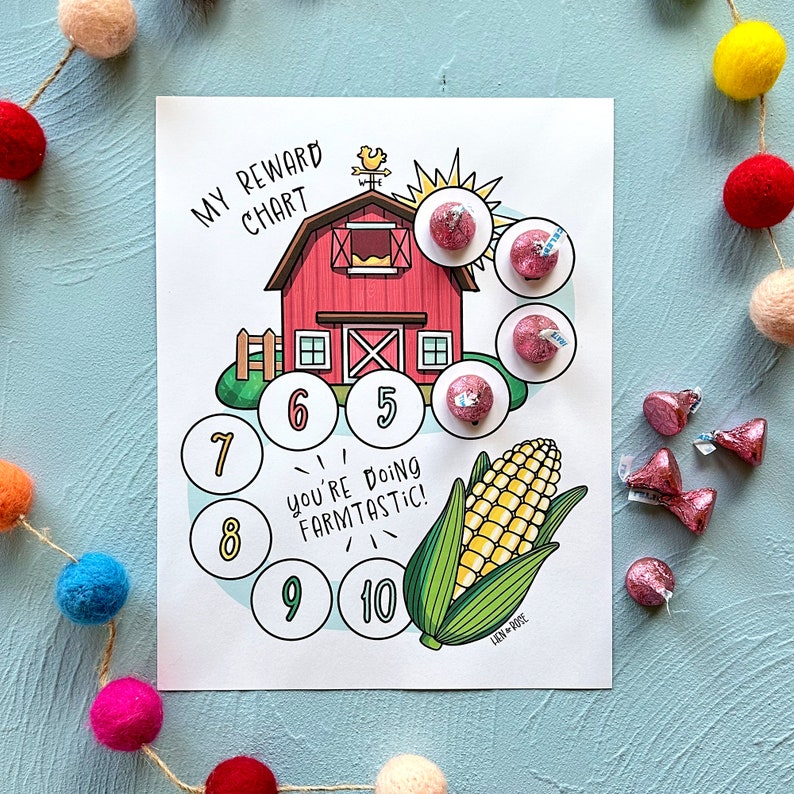 MY REWARD
CHART
W E
6
5
7
YOU'RE DOING
FARMTASTIC!
8
9
10
HEN & ROSE